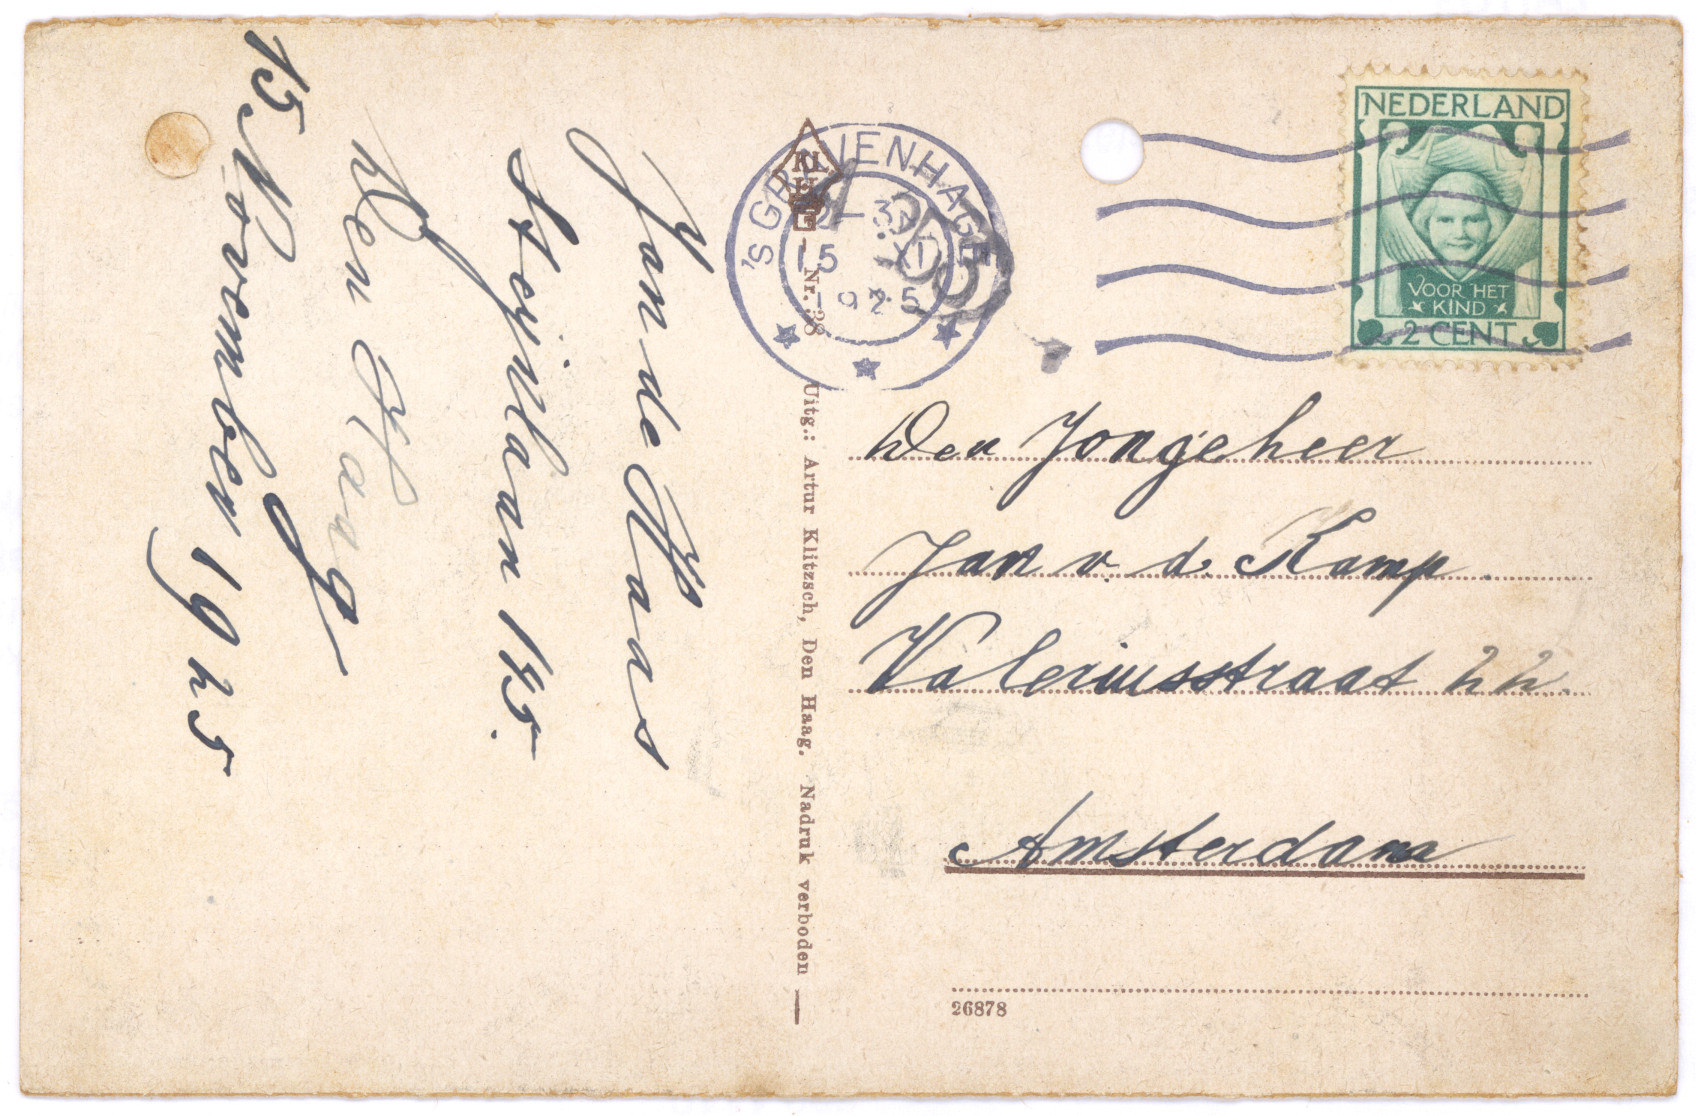 Jan de Haas
Heijtlaan 145.
Den Haag
15 November 1925
'SGRAVENHAGE
3
15 XI
1925
Nr. 38
Uitg.: Artur Klitzsch, Den Haag. Nadruk verboden
NEDERLAND
VOOR HET
KIND
2 CENT
Den Jongeheer
Jan v. d. Kamp.
Valeriusstraat 22.
Amsterdam
26878